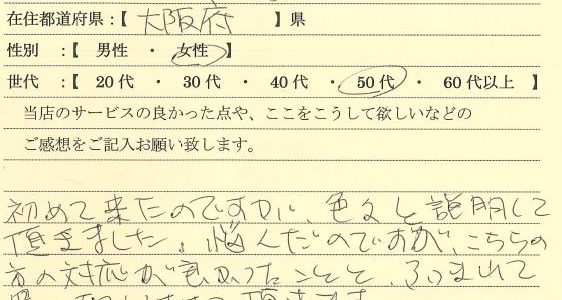 在住都道府県：【 大阪府 】県
性別 ：【 男性 ・ 女性 】
世代 ：【 20代 ・ 30代 ・ 40代 ・ 50代 ・ 60代以上 】
当店のサービスの良かった点や、ここをこうして欲しいなどの
ご感想をご記入お願い致します。
初めて来たのですが、色々と説明して
頂きました。悩んだのですが、こちらの
方の対応が良かったことと、